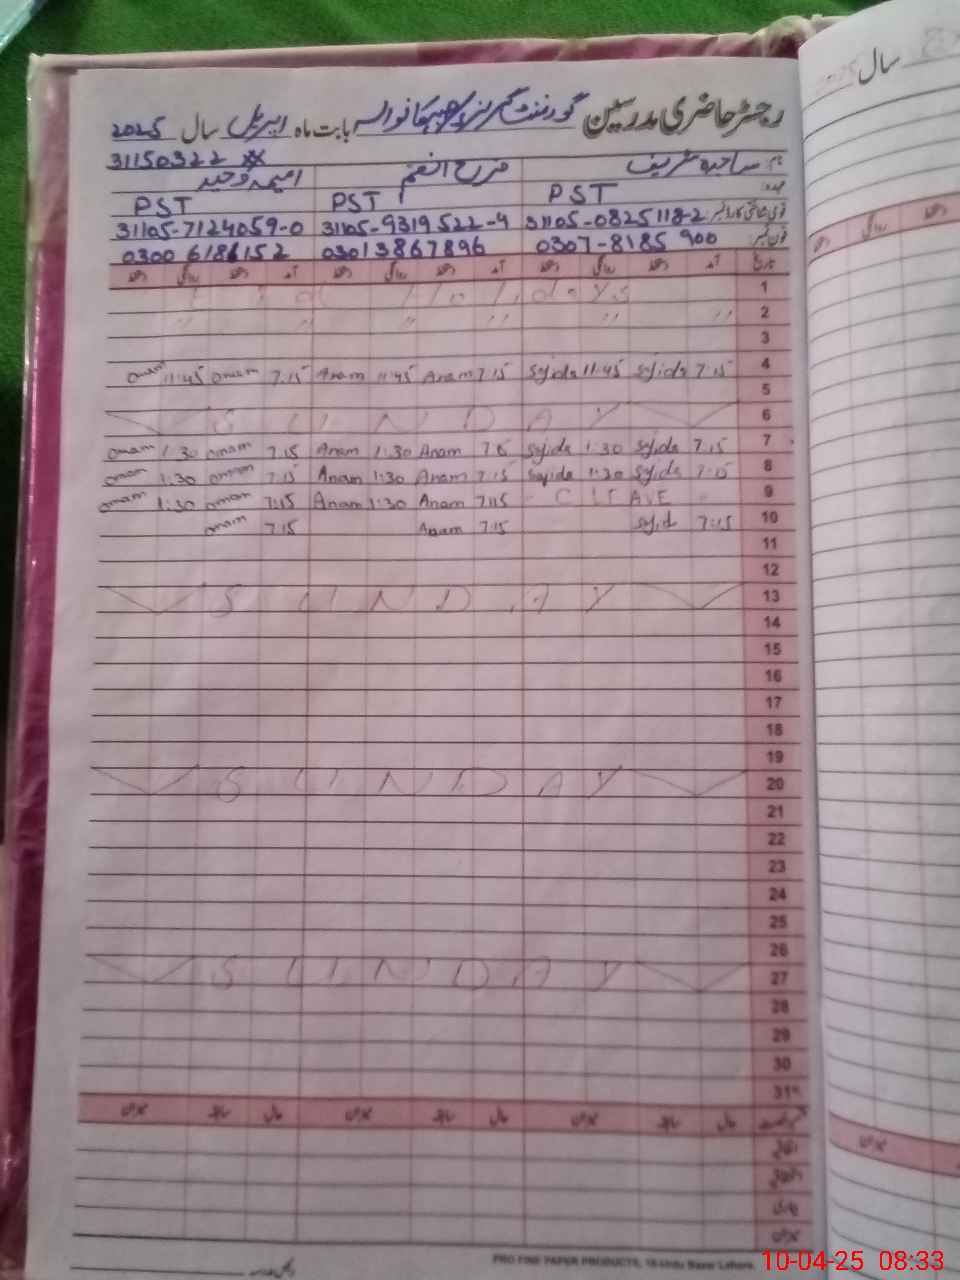 رجسٹر حاضری مدرسین گورنمنٹ گرلز بابت ماہ اپریل سال 2025
31150322
نام: ساجدہ شریف فرح انعم وحید
عہدہ: PST PST PST
قومی شناختی کارڈ نمبر: 31105-0825118-2 31105-9319522-4 31105-7124059-0
فون نمبر: 0307-8185900 03013867896 03006186152
تاریخ آمد دستخط روانگی دستخط آمد دستخط روانگی دستخط آمد دستخط روانگی دستخط
1 Holidays
2 " " " " " "
3
4 7:15 Sajida 11:45 Sajida 7:15 Anam 11:45 Anam 7:15 omam 11:45 omam
5
6 SUNDAY
7 7:15 Sajida 1:30 Sajida Anam 1:30 Anam 7:15 omam 1:30 omam
8 7:15 Sajida 1:30 Sajida 7:15 Anam 1:30 Anam 7:15 omam 1:30 omam
9 C LEAVE 7:15 Anam 1:30 Anam 7:15 omam 1:30 omam
10 7:15 Sajid 7:15 Anam 7:15 omam
11
12
13 SUNDAY
14
15
16
17
18
19
20 SUNDAY
21
22
23
24
25
26
27 SUNDAY
28
29
30
31
حال سابقہ میزان حال سابقہ میزان حال سابقہ میزان
اتفاقیہ
بیماری
میزان
PRO FINE PAPER PRODUCTS, 16-Urdu Bazar Lahore.
سال
میزان
10-04-25 08:33